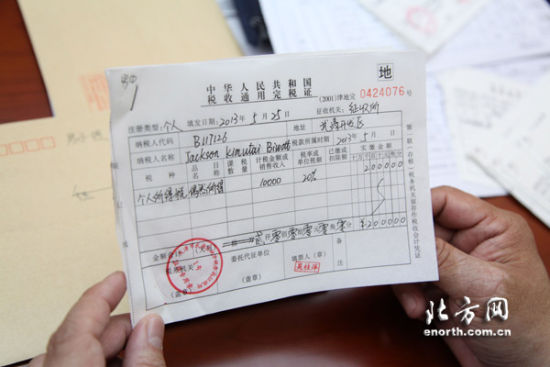 中华人民共和国
税收通用完税证
地
(2001)津地宝 0424076 号
注册类型:个人 填发日期:2013年5月25日 征收机关:征收所
纳税人代码 B117126 地址
纳税人名称 Jackson Kimutai 税款所属时期 2013年5月
税种 品目名称 课税数量 计税金额或销售收入 税率或单位税额 已缴或扣除额
个人所得税 偶然所得 10000 20% 200000
金额合计 贰仟零佰零拾零元零角零分 ¥200000
税务机关 (盖章) 委托代征单位 (盖章) 填票人(章) 备注
北方网
enorth.com.cn